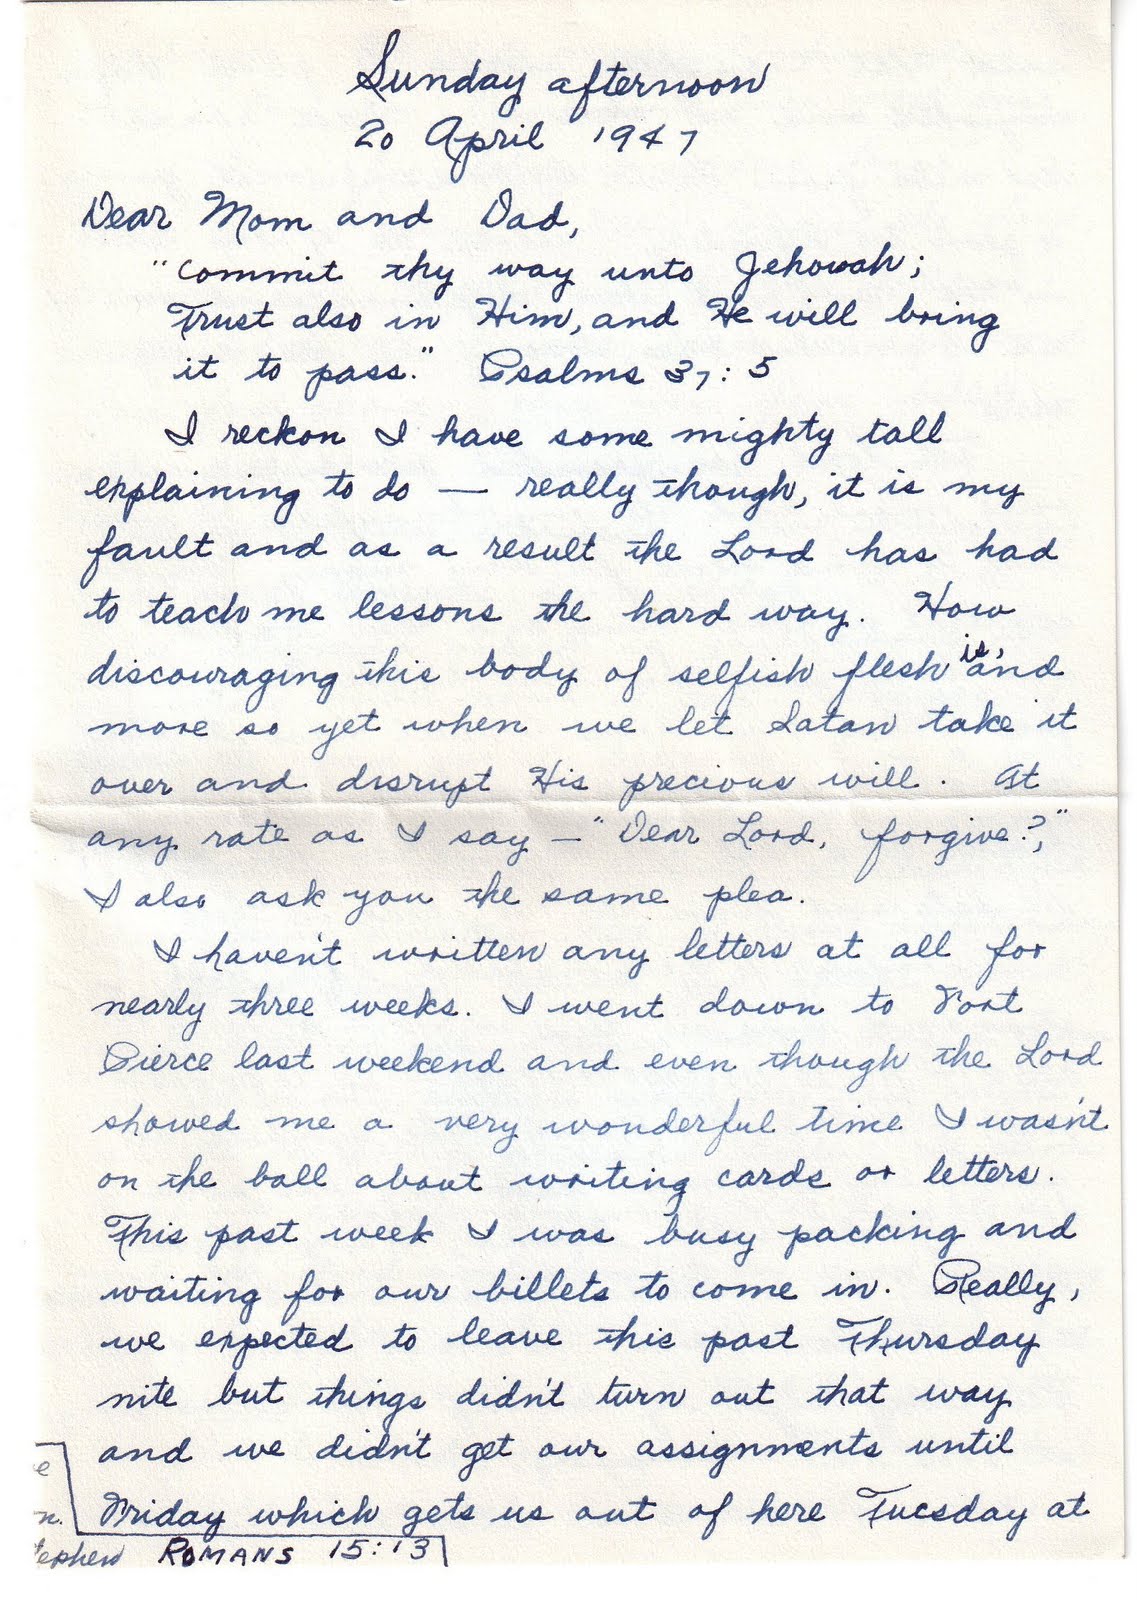 Sunday afternoon
20 April 1947
Dear Mom and Dad,
"Commit thy way unto Jehovah;
Trust also in Him, and He will bring
it to pass." Psalms 37:5
I reckon I have some mighty tall
explaining to do — really though, it is my
fault and as a result the Lord has had
to teach me lessons the hard way. How
discouraging this body of selfish flesh is, and
more so yet when we let Satan take it
over and disrupt His precious will. At
any rate as I say — "Dear Lord, forgive?,"
I also ask you the same plea.
I haven't written any letters at all for
nearly three weeks. I went down to Fort
Pierce last weekend and even though the Lord
showed me a very wonderful time I wasn't
on the ball about writing cards or letters.
This past week I was busy packing and
waiting for our billets to come in. Really,
we expected to leave this past Thursday
nite but things didn't turn out that way
and we didn't get our assignments until
Friday which gets us out of here Tuesday at
e
n.
tephen ROMANS 15:13